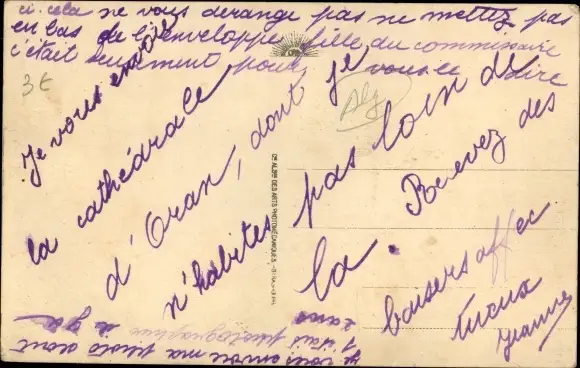 si cela ne vous derange pas ne mettez pas
en bas de l'enveloppe fille du commissaire
c'était seulement pour vous le dire
3€
Alg
Je vous envoie
la cathédrale
d'Oran, dont je
n'habites pas loin de
là. Recevez des
baisers affec
tueux
Jeanne
Cie ALGne DES ARTS PHOTOMÉCANIQUES
je vous envoie ma photo dont
j'étais photographiée à
2 ans